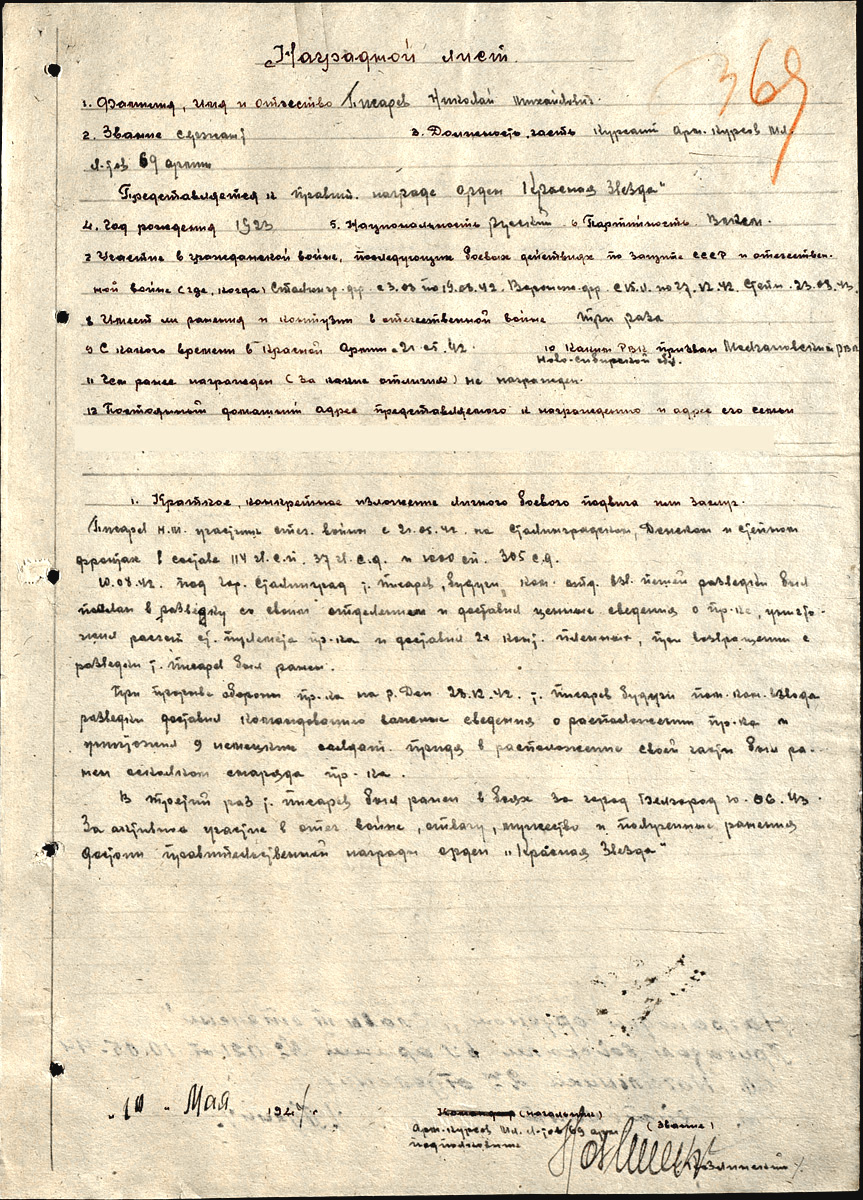 Наградной лист
369
1. Фамилия, имя и отчество Писарев Николай Михайлович.
2. Звание сержант 3. Должность, часть Курсант Арм. Курсов Мл.
Л-тов 69 армии
Представляется к правит. награде орден "Красная Звезда"
4. Год рождения 1923 5. Национальность русский 6 Партийность Влксм.
7 Участие в гражданской войне, последующих боевых действиях по защите СССР и отечествен-
ной войне (где, когда) Сталингр. фр. с 3.08 по 19.08.42. фр. по 27.12.42. Степн. 23.08.43.
8 Имеет ли ранения и контузии в отечественной войне Три раза
9 С какого времени в Красной Армии с 21.05.42. 10 Каким РВК призван РВК
Ново-сибирской обл.
11 Чем ранее награжден (за какие отличия) не награжден.
12 Постоянный домашний адрес представляемого к награждению и адрес его семьи
1. Краткое, конкретное изложение личного боевого подвига или заслуг.
Писарев Н.М. участник отеч. войны с 21.05.42. на Сталинградском, Донском и Степном
фронтах в составе 114 гв. с.п. 37 гв. с.д. и 1000 сп. 305 с.д.
10.08.42. под гор. Сталинград т. Писарев, будучи ком. отд. взв. пешей разведки был
послан в разведку со своим отделением и доставил ценные сведения о пр-ке, уничто-
жил расчет ст. пулемета пр-ка и доставил 2х пленных, при возвращении с
разведки т. Писарев был ранен.
При прорыве обороны пр-ка на р. Дон 28.12.42. т. Писарев будучи пом. ком. взвода
разведки доставил командованию важные сведения о расположении пр-ка и
уничтожил 9 немецких солдат. придя в расположение своей части был ра-
нен осколком снаряда пр-ка.
В третий раз т. Писарев был ранен в боях за город Белгород 10.08.43.
За активное участие в отеч войне, отвагу, мужество и полученные ранения
достоин правительственной награды орден "Красная Звезда"
"10" Мая 1944г.
Командир (начальник)
Арм. Курсов Мл. Л-тов 69 арм (звание)
подполковник